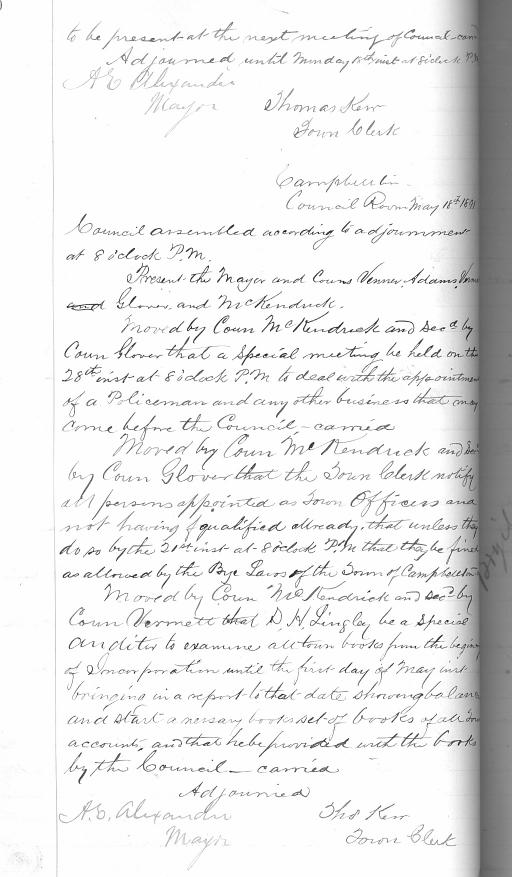 to be present at the next meeting of Council - carr
Adjourned until Monday 18th inst at 8 o'clock P.M
A.E. Alexander
Mayor
Thomas Kerr
Town Clerk
Campbellton
Council Room May 18th 1891
Council assembled according to adjournment
at 8 o'clock P.M.
Present the Mayor and Couns Venner, Adams,
and Glover, and McKendrick.
Moved by Coun McKendrick and Secd by
Coun Glover that a Special meeting be held on the
28th inst at 8 o'clock P.M to deal with the appointmen
of a Policeman and any other business that may
come before the Council - carried
Moved by Coun McKendrick and Sec
by Coun Glover that the Town Clerk notify
all persons appointed as Town Officers and
not having qualified already, that unless they
do so by the 21st inst at 8 o'clock P.M that they be fined
as allowed by the Bye Laws of the Town of Campbellton
Moved by Coun McKendrick and Secd by
Coun Vermett that D. H. Lingley be a Special
auditor to examine all town books from the begin
of Incorporation until the first day of May inst
bringing in a report to that date showing balan
and start a necessary books set of books of all Tow
accounts, and that he be provided with the books
by the Council - carried
Adjourned
A.E. Alexander
Mayor
Thos Kerr
Town Clerk